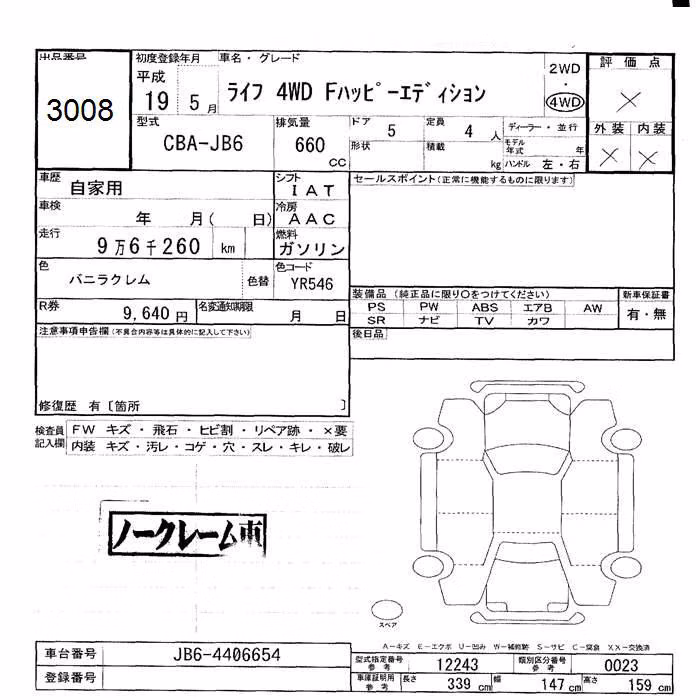 出品番号
3008
初度登録年月
平成
19 5月
車名・グレード
ライフ 4WD Fハッピーエディション
2WD
・
4WD
評価点
×
型式
CBA-JB6
排気量
660
CC
ドア
5
定員
4 人
ディーラー・並行
形状
積載
kg
モデル年式
年
ハンドル 左・右
外装 内装
× ×
車歴
自家用
シフト
IAT
セールスポイント(正常に機能するものに限ります)
車検
年 月( 日)
冷房
AAC
走行
9万6千260 km
燃料
ガソリン
色
バニラクレム
色替
色コード
YR546
装備品 (純正品に限り○をつけてください)
新車保証書
PS PW ABS エアB AW
SR ナビ TV カワ
有・無
R券
9,640 円
名変通知期限
月 日
後日品
注意事項申告欄(不具合内容等は具体的に記入して下さい)
修復歴 有〔箇所 〕
検査員
記入欄
FW キズ・飛石・ヒビ割・リペア跡・×要
内装 キズ・汚レ・コゲ・穴・スレ・キレ・破レ
ノークレーム車
スペア
A-キズ E-エクボ U-凹み W-補修跡 S-サビ C-腐食 XX-交換済
車台番号
JB6-4406654
登録番号
型式指定番号
参考
12243
類別区分番号
参考
0023
車庫証明用
参考
長さ
339 cm
幅
147 cm
高さ
159 cm